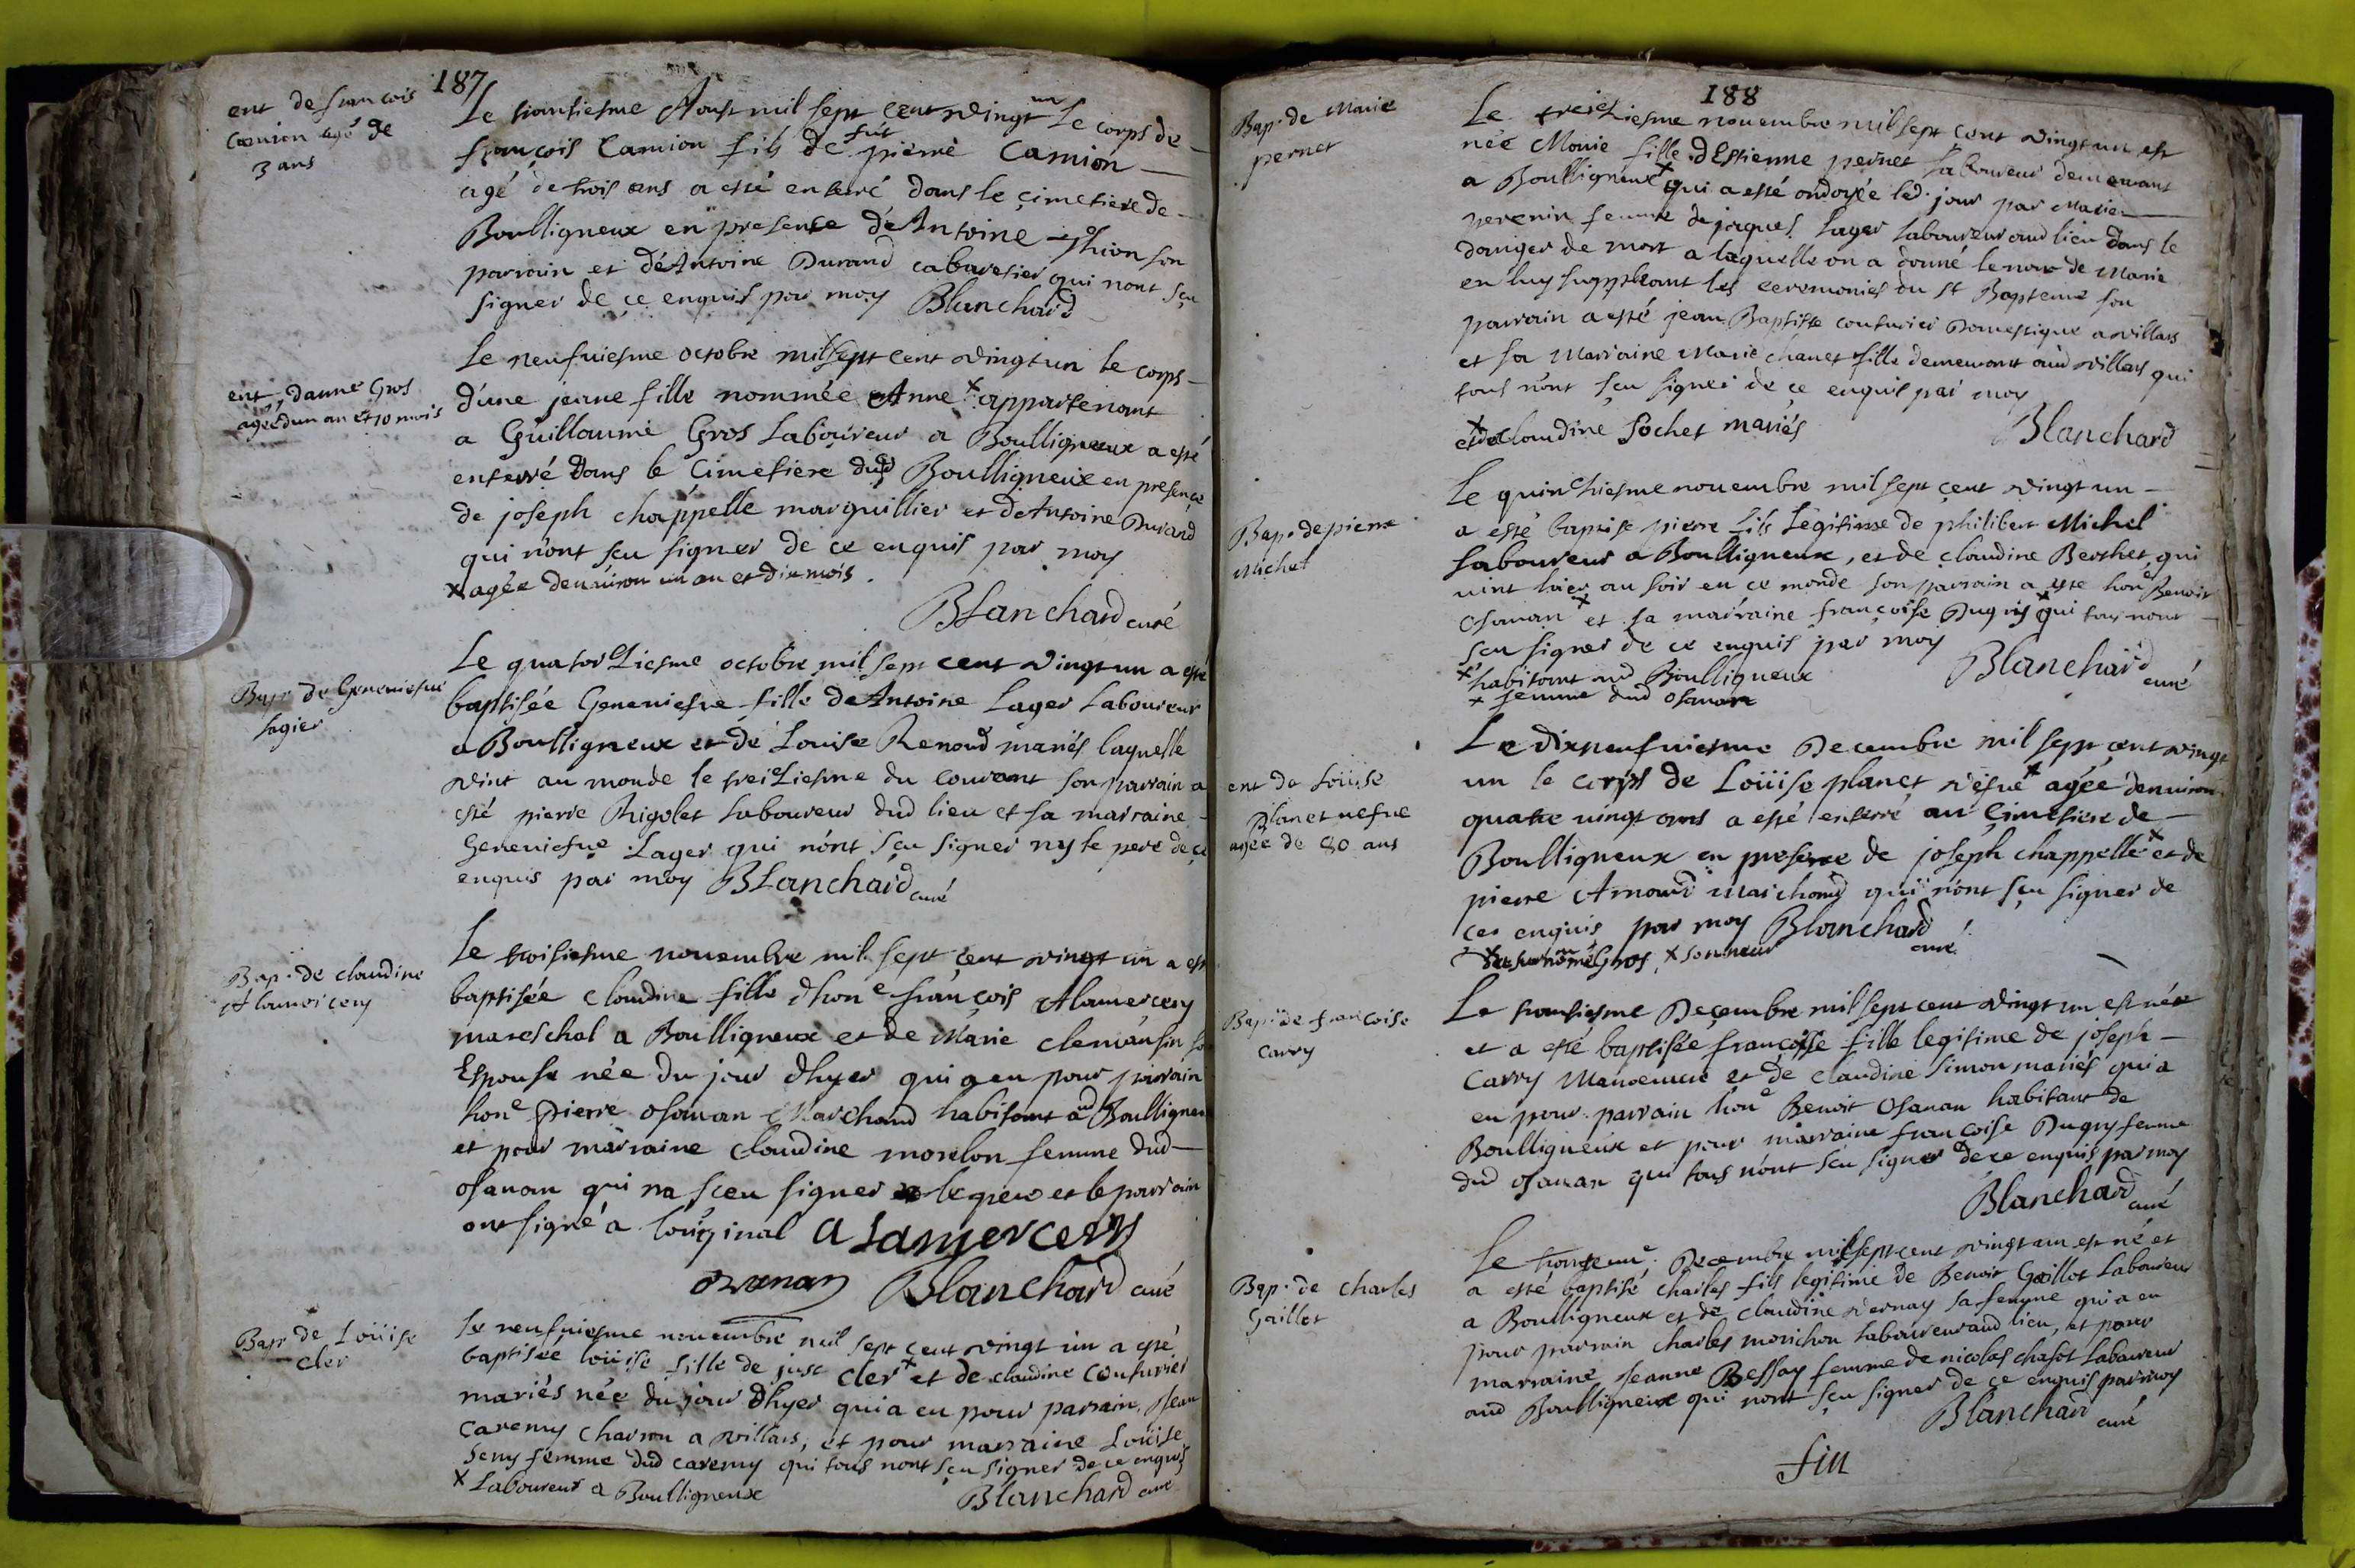 187
ent de francois
Camion agé de
3 ans
Le trantiesme Aoust mil sept cent vingt un le corps de
françois Camion fils de fut pierre Camion
agé de trois ans a esté enterré dans le çimetiere de
Boulligneux en presence d'Antoine son
parrain et d'Antoine Durand cabaretier qui nont sçu
signer de çe enquis par moy Blanchard
ent. danne Gros
agée dun an et 10 mois
Le neufuiesme octobre mil sept cent vingt un le corps
d'une jeune fille nommée Anne x appartenant
a Guillaume Gros Laboureur a Boulligneux a esté
enterré dans le Çimetiere dud Boulligneux en presençe
de joseph chappelle marguillier et d'Antoine Durand
qui n'ont sçu signer de ce enquis par moy
x agée denuiron un an et dix mois.
Blanchard curé
Bap. de Geneuiefue
Lagier
Le quatorziesme octobre mil sept cent vingt un a esté
baptisée Geneuiefue fille de Antoine Lager Laboureur
a Boulligneux et de Louise Renoud mariés laquelle
vint au monde le treiziesme du Courant son parrain a
esté pierre Rigolet laboureur dud lieu et sa marraine
Geneuiefue Lager qui n'ont sçu signer ny le pere de çe
enquis par moy Blanchard curé
Bap. de claudine
Alamercery
Le troisiesme nouembre mil sept çent vingt un a esté
baptisée claudine fille dhone françois Alamercery
mareschal a Boulligneux et de Marie clemansin son
Espouse née du jour dhyer qui a eu pour parrain
hone pierre osanan Marchand habitant aud Boulligneux
et pour marraine claudine morelon femme dud
osanan qui na sceu signer le pere et le parrain
ont signé a louiginal Alamercery
ozanan Blanchard curé
Bap. de Loüise
cler
Le neufuiesme nouembre mil sept cent vingt un a esté
baptisée loüise fille de just cler x et de claudine Couturier
mariés née du jour dhyer qui a eu pour parrain, jean
Caremy charron a villars, et pour marraine Loüise
Seny femme dud caremy qui tous nont sçu signer de ce enquis
x Laboureur a Boulligneux
Blanchard curé
188
Bap. de Marie
pernet
Le treiziesme nouembre mil sept cent vingt un est
née Marie fille dEstienne pernet laboureur demeurant
a Boulligneux x qui a esté ondoyée led. jour par Marie
perenin femme de jaques Lager laboureur aud lieu dans le
danger de mort a laquelle on a donné le nom de Marie
en luy suppleant les ceremonies du st Bapteme son
parrain a esté jean Baptiste couturier Domestique a villars
et sa Marraine Marie chanet fille demeurant aud villars qui
tous n'ont sçu signer de çe enquis par moy
x et de claudine Sochet mariés
Blanchard
Bap. de pierre
Michel
Le quinziesme nouembre mil sept çent vingt un
a esté baptisé pierre fils Légitime de philibert Michel
laboureur a Boulligneux, et de claudine Berthet, qui
uint hier au soir en ce monde son parrain a esté hone Benoit
Osanan x et sa marraine françoise Dugris x qui tous nont
sçu signer de ce enquis par moy
x habitant aud Boulligneux
x femme dud osanan
Blanchard curé
ent de Loüise
Planet uefue
agée de 80 ans
Le dixneufuiesme Decembre mil sept çent vingt
un le corps de Loüise planet vefue x agée denuiron
quatre uingt ans a esté enterré au Çimetiere de
Boulligneux en presence de joseph chappelle x et de
pierre Arnoud Marchand qui n'ont sçu signer de
ces enquis par moy Blanchard curé
surnomé Gros, x sonneur
Bap. de francoise
Carry
Le trantiesme Deçembre mil sept cent vingt un est née
et a esté baptisée françoise fille legitime de joseph
Carry Manoeuure et de claudine Simon mariés qui a
eu pour parrain hone Benoit Osanan habitant de
Boulligneux et pour marraine francoise Dugry femme
dud osanan qui tous n'ont sçu signer de ce enquis par moy
Blanchard curé
Bap. de Charles
Gaillot
Le Decembre mil sept cent vingt un est né et
a esté baptisé charles fils legitime de Benoit Gaillot Laboureur
a Boulligneux et de claudine vernay sa femme qui a eu
pour parrain charles morichon laboureur aud lieu, et pour
marraine jeanne Bessay femme de nicolas chasot Laboureur
aud Boulligneux qui nont sçu signer de çe enquis par moy
Blanchard curé
fin